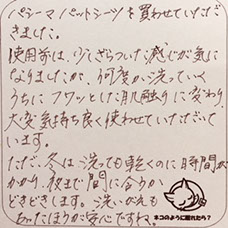 パシーマ パットシーツを買わせていただ
きました。
使用前は、少しざらついた感じが気に
なりましたが、何度か洗っていく
うちにフワッとした肌触りに変わり、
大変気持ち良く使わせていただいて
います。
ただ、冬は洗っても乾くのに時間が
かかり、夜まで間に合うか
どきどきします。洗いがえも
あったほうが安心ですね。
ネコのように眠れたら?